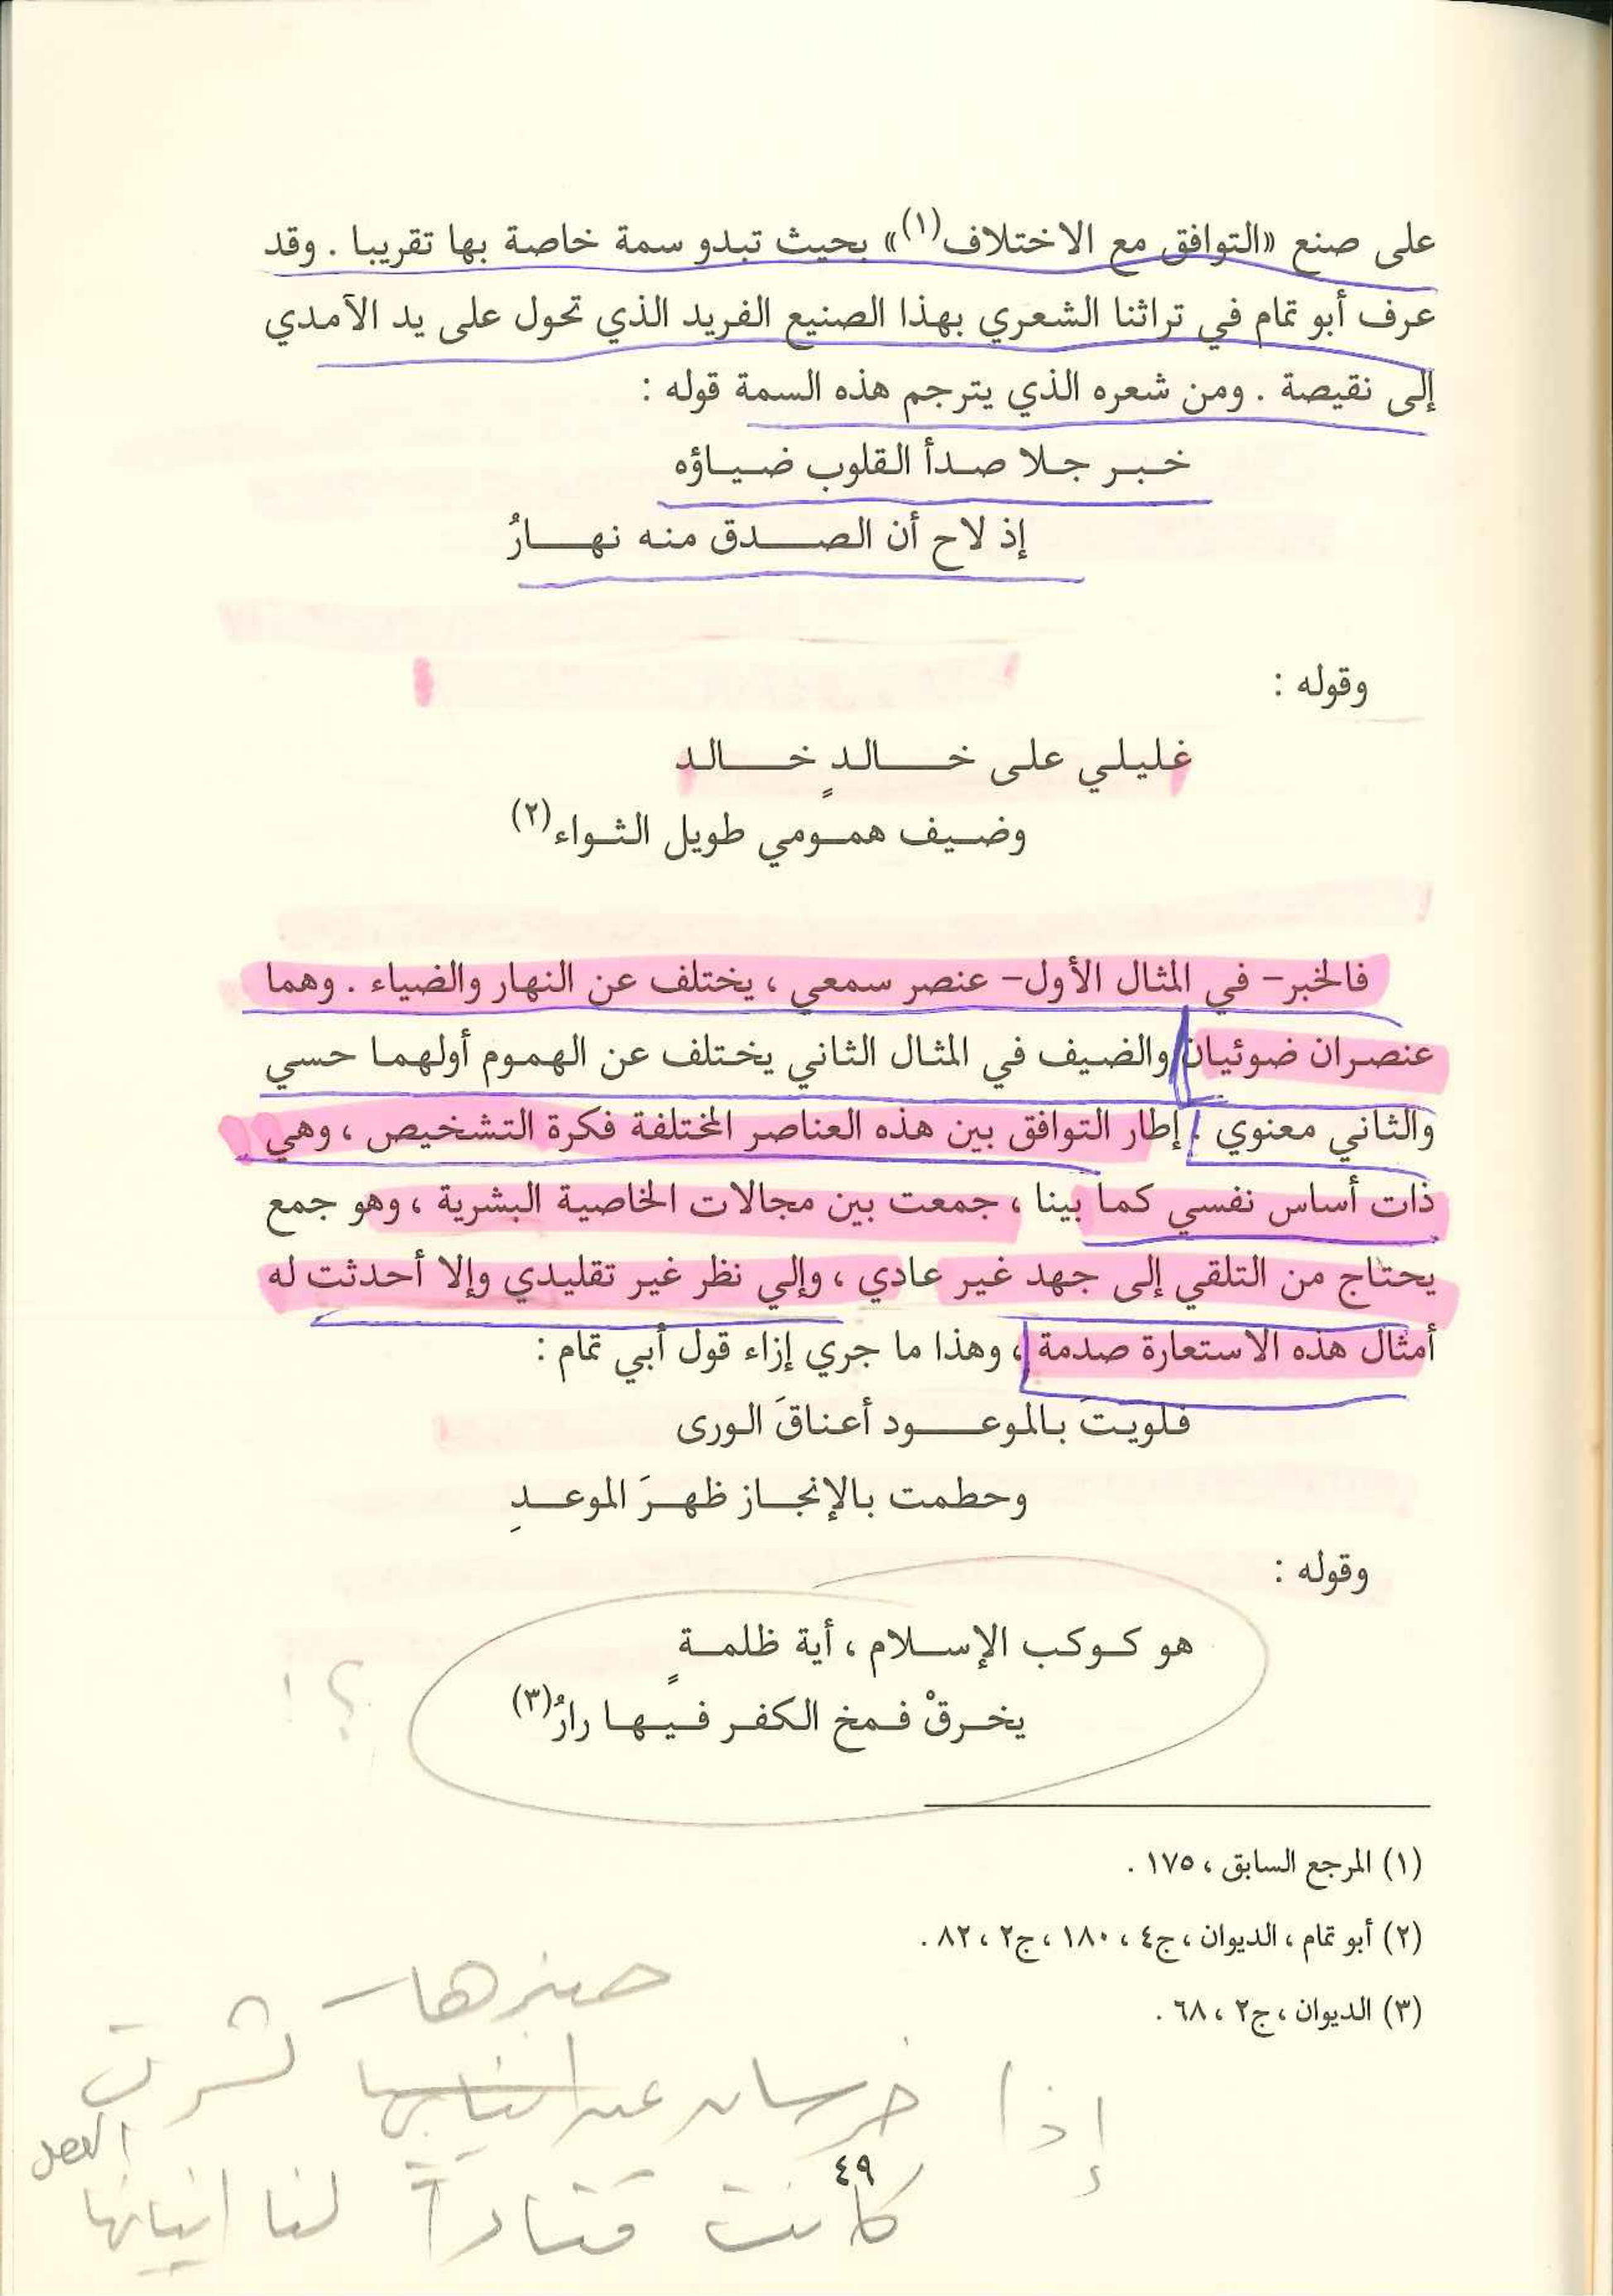 على صنع «التوافق مع الاختلاف(١)» بحيث تبدو سمة خاصة بها تقريبا . وقد
عرف أبو تمام في تراثنا الشعري بهذا الصنيع الفريد الذي تحول على يد الآمدي
إلى نقيصة . ومن شعره الذي يترجم هذه السمة قوله :
خبر جلا صدأ القلوب ضياؤه
إذ لاح أن الصدق منه نهارُ
وقوله :
غليلي على خالدٍ خالد
وضيف همومي طويل الثواء(٢)
فالخبر– في المثال الأول– عنصر سمعي ، يختلف عن النهار والضياء . وهما
عنصران ضوئيان والضيف في المثال الثاني يختلف عن الهموم أولهما حسي
والثاني معنوي . إطار التوافق بين هذه العناصر المختلفة فكرة التشخيص ، وهي
ذات أساس نفسي كما بينا ، جمعت بين مجالات الخاصية البشرية ، وهو جمع
يحتاج من التلقي إلى جهد غير عادي ، وإلي نظر غير تقليدي وإلا أحدثت له
أمثال هذه الاستعارة صدمة ، وهذا ما جري إزاء قول أبي تمام :
فلويتَ بالموعود أعناقَ الورى
وحطمت بالإنجاز ظهرَ الموعدِ
وقوله :
هو كوكب الإسلام ، أية ظلمةٍ
يخرقْ فمخ الكفر فيها رارُ(٣)
؟ !
(١) المرجع السابق ، ١٧٥ .
(٢) أبو تمام ، الديوان ، ج٤ ، ١٨٠ ، ج٢ ، ٨٢ .
(٣) الديوان ، ج٢ ، ٦٨ .
إذا خرسان عن
٤٩
كانت قتاداً لنا انيابها